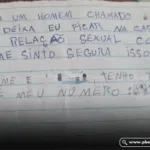 UM HOMEM CHAMADO
DEIXA EU FICAR NA CAS
RELAÇÃO SEXUAL CO
ME SINTO SEGURA ISSO
ME E TENHO
E MEU NUMERO: